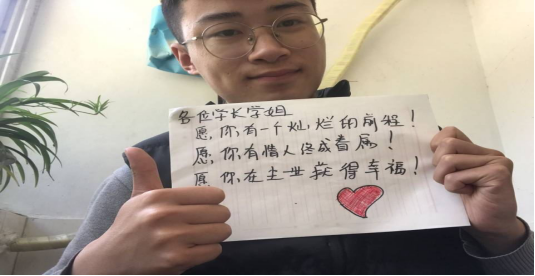 各位学长学姐
愿,你,有一个灿,烂的前程！
愿,你有情人终成眷属！
愿,你,在尘世获得幸福！